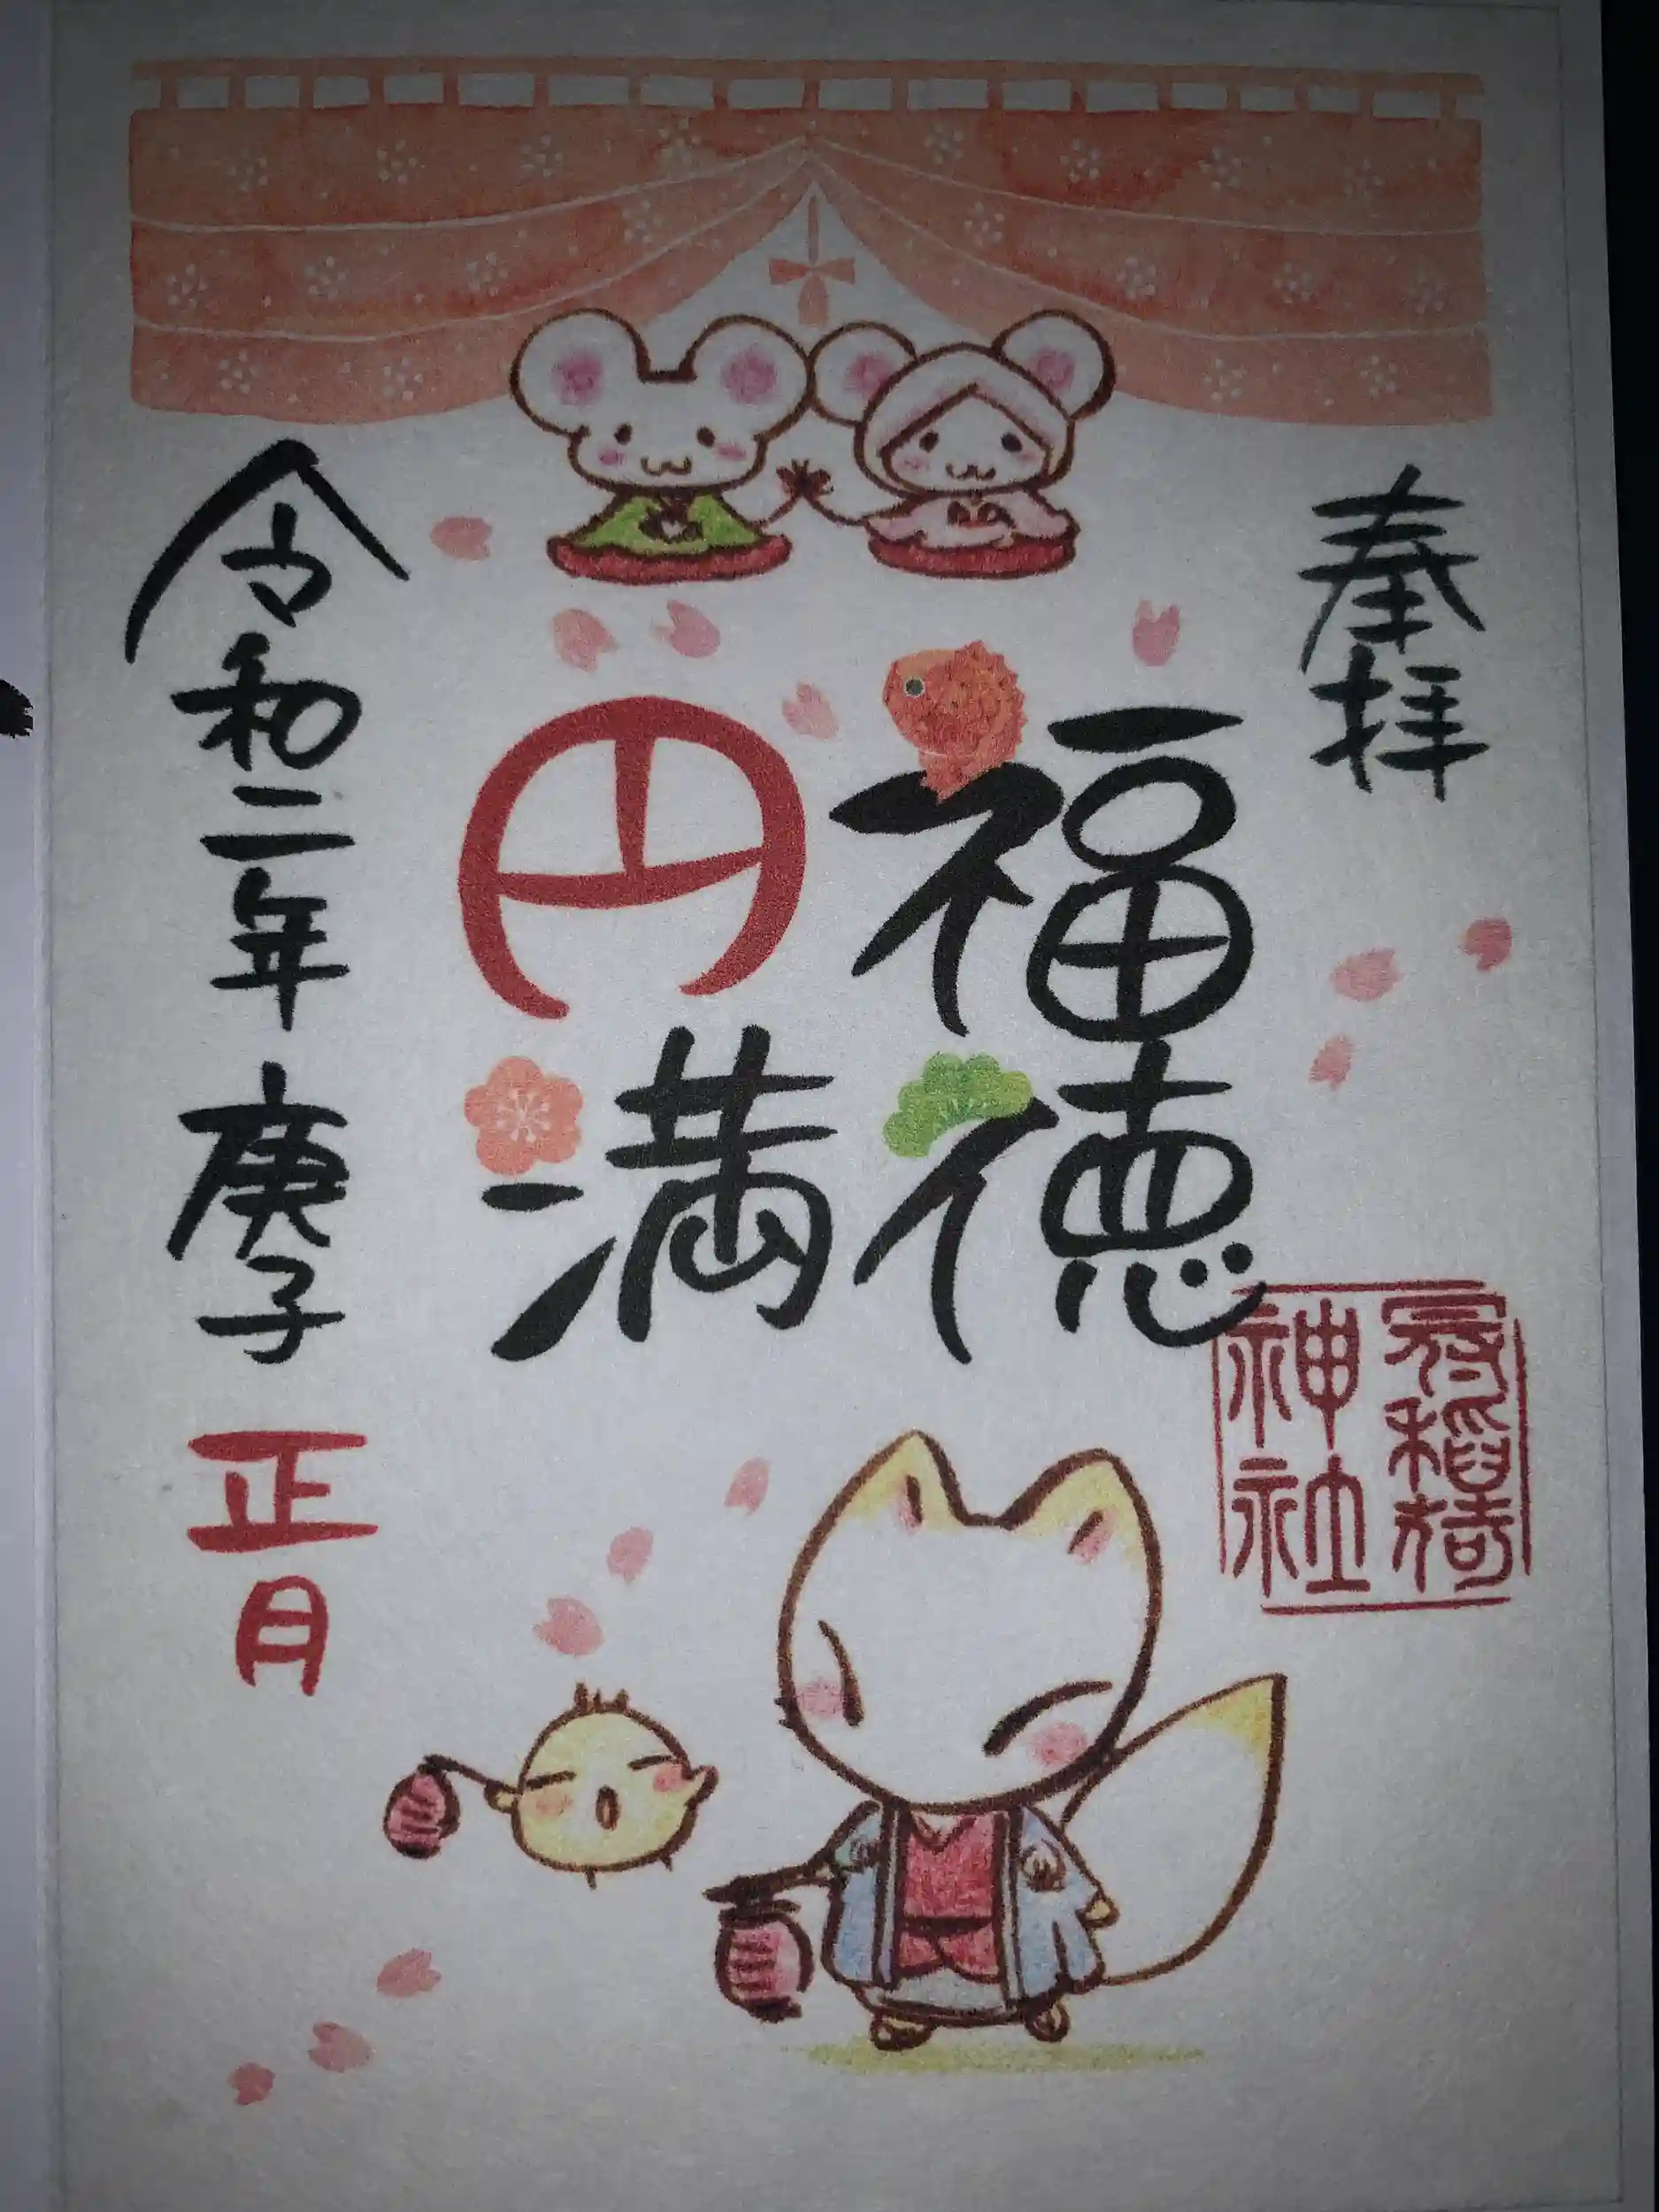 奉拝
福徳
円満
稲荷
神社
令和二年 庚子 正月